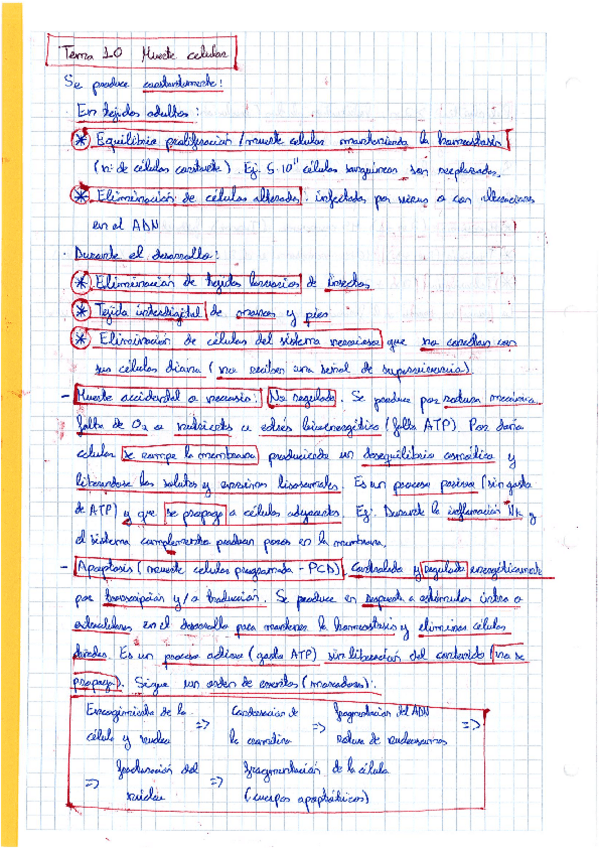 Tema 10 Muerte celular
Se produce constantemente:
· En tejidos adultos:
* Equilibrio proliferación/muerte celular manteniendo la homeostasis
(nº de células constante). Ej. 5·10¹¹ células sanguíneas son reeplazadas.
* Eliminación de células alteradas: infectadas por virus o con alteraciones
en el ADN
· Durante el desarrollo:
* Eliminación de tejidos larvarios de insectos
* Tejido interdigital de manos y pies
* Eliminación de células del sistema nervioso que no conectan con
sus células diana (no reciben una señal de supervivencia).
- Muerte accidental o necrosis: No regulado. Se produce por rotura mecánica
falta de O₂ o nutrientes u estrés bioenergético (falta ATP). Por daño
celular se rompe la membrana produciendo un desequilibrio osmótico y
liberándose los solutos y enzimas lisosomales. Es un proceso pasivo (sin gasto
de ATP) y que se propaga a células adyacentes. Ej: Durante la inflamación NK y
el sistema complemento producen poros en la membrana.
- Apoptosis (muerte celular programada - PCD) controlada y regulada energéticamente
por transcripción y/o traducción. Se produce en respuesta a estímulos intra o
extracelulares en el desarrollo para mantener la homeostasis y eliminar células
dañadas. Es un proceso activo (gasta ATP) sin liberación del contenido (no se
propaga). Sigue un orden de eventos (marcadores):
Encogimiento de la => Condensación de => fragmentación del ADN =>
célula y núcleo la cromatina rotura de nucleosomas
=> fracturación del => fragmentación de la célula
núcleo (cuerpos apoptóticos)